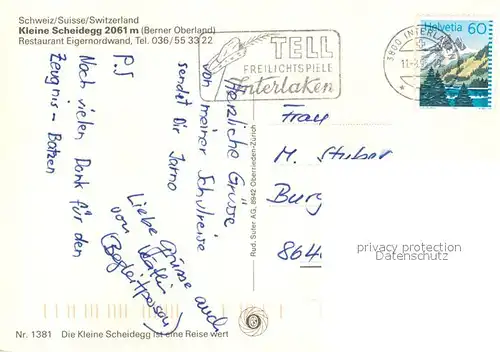 Schweiz/Suisse/Switzerland
Kleine Scheidegg 2061 m (Berner Oberland)
Restaurant Eigernordwand, Tel. 036/55 33 22
TELL
FREILICHTSPIELE
Interlaken
3800 INTERLAKEN
Helvetia 60
Herzliche Grüsse
von meiner Schulreise
sendet Dir Jarno
P.S
Noch vielen Dank für den
Zeugnis-Batzen
Liebe Grüsse auch
von
(Begleitperson)
Frau
M. Stuber
Burg
864
Rud. Suter AG, 8942 Oberrieden-Zürich
privacy protection
watermark
Nr. 1381 Die Kleine Scheidegg ist eine Reise wert